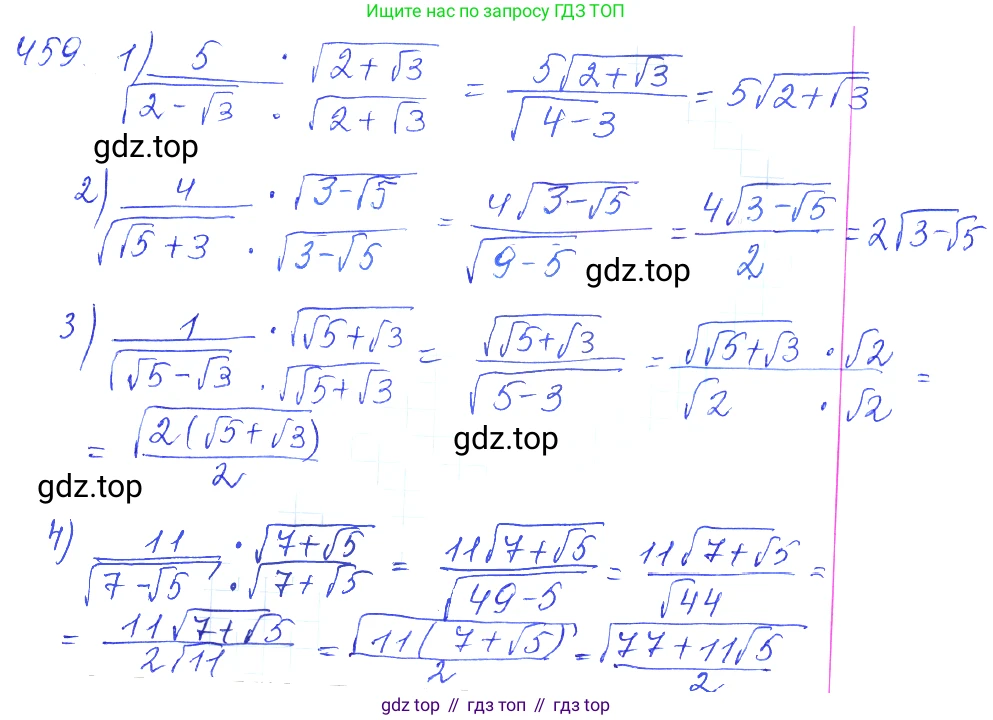 Ищите нас по запросу ГДЗ ТОП
459. 1) 5/√(2-√3) · √(2+√3)/√(2+√3) = 5√(2+√3)/√(4-3) = 5√(2+√3)
gdz.top
2) 4/√(√5+3) · √(3-√5)/√(3-√5) = 4√(3-√5)/√(9-5) = 4√(3-√5)/2 = 2√(3-√5)
gdz.top
3) 1/√(√5-√3) · √(√5+√3)/√(√5+√3) = √(√5+√3)/√(5-3) = √(√5+√3)/√2 · √2/√2 =
= √(2(√5+√3))/2
gdz.top
gdz.top
4) 11/√(7-√5) · √(7+√5)/√(7+√5) = 11√(7+√5)/√(49-5) = 11√(7+√5)/√44 =
= 11√(7+√5)/2√11 = √(11(7+√5))/2 = √(77+11√5)/2
gdz.top // гдз.топ // gdz.top // гдз.топ